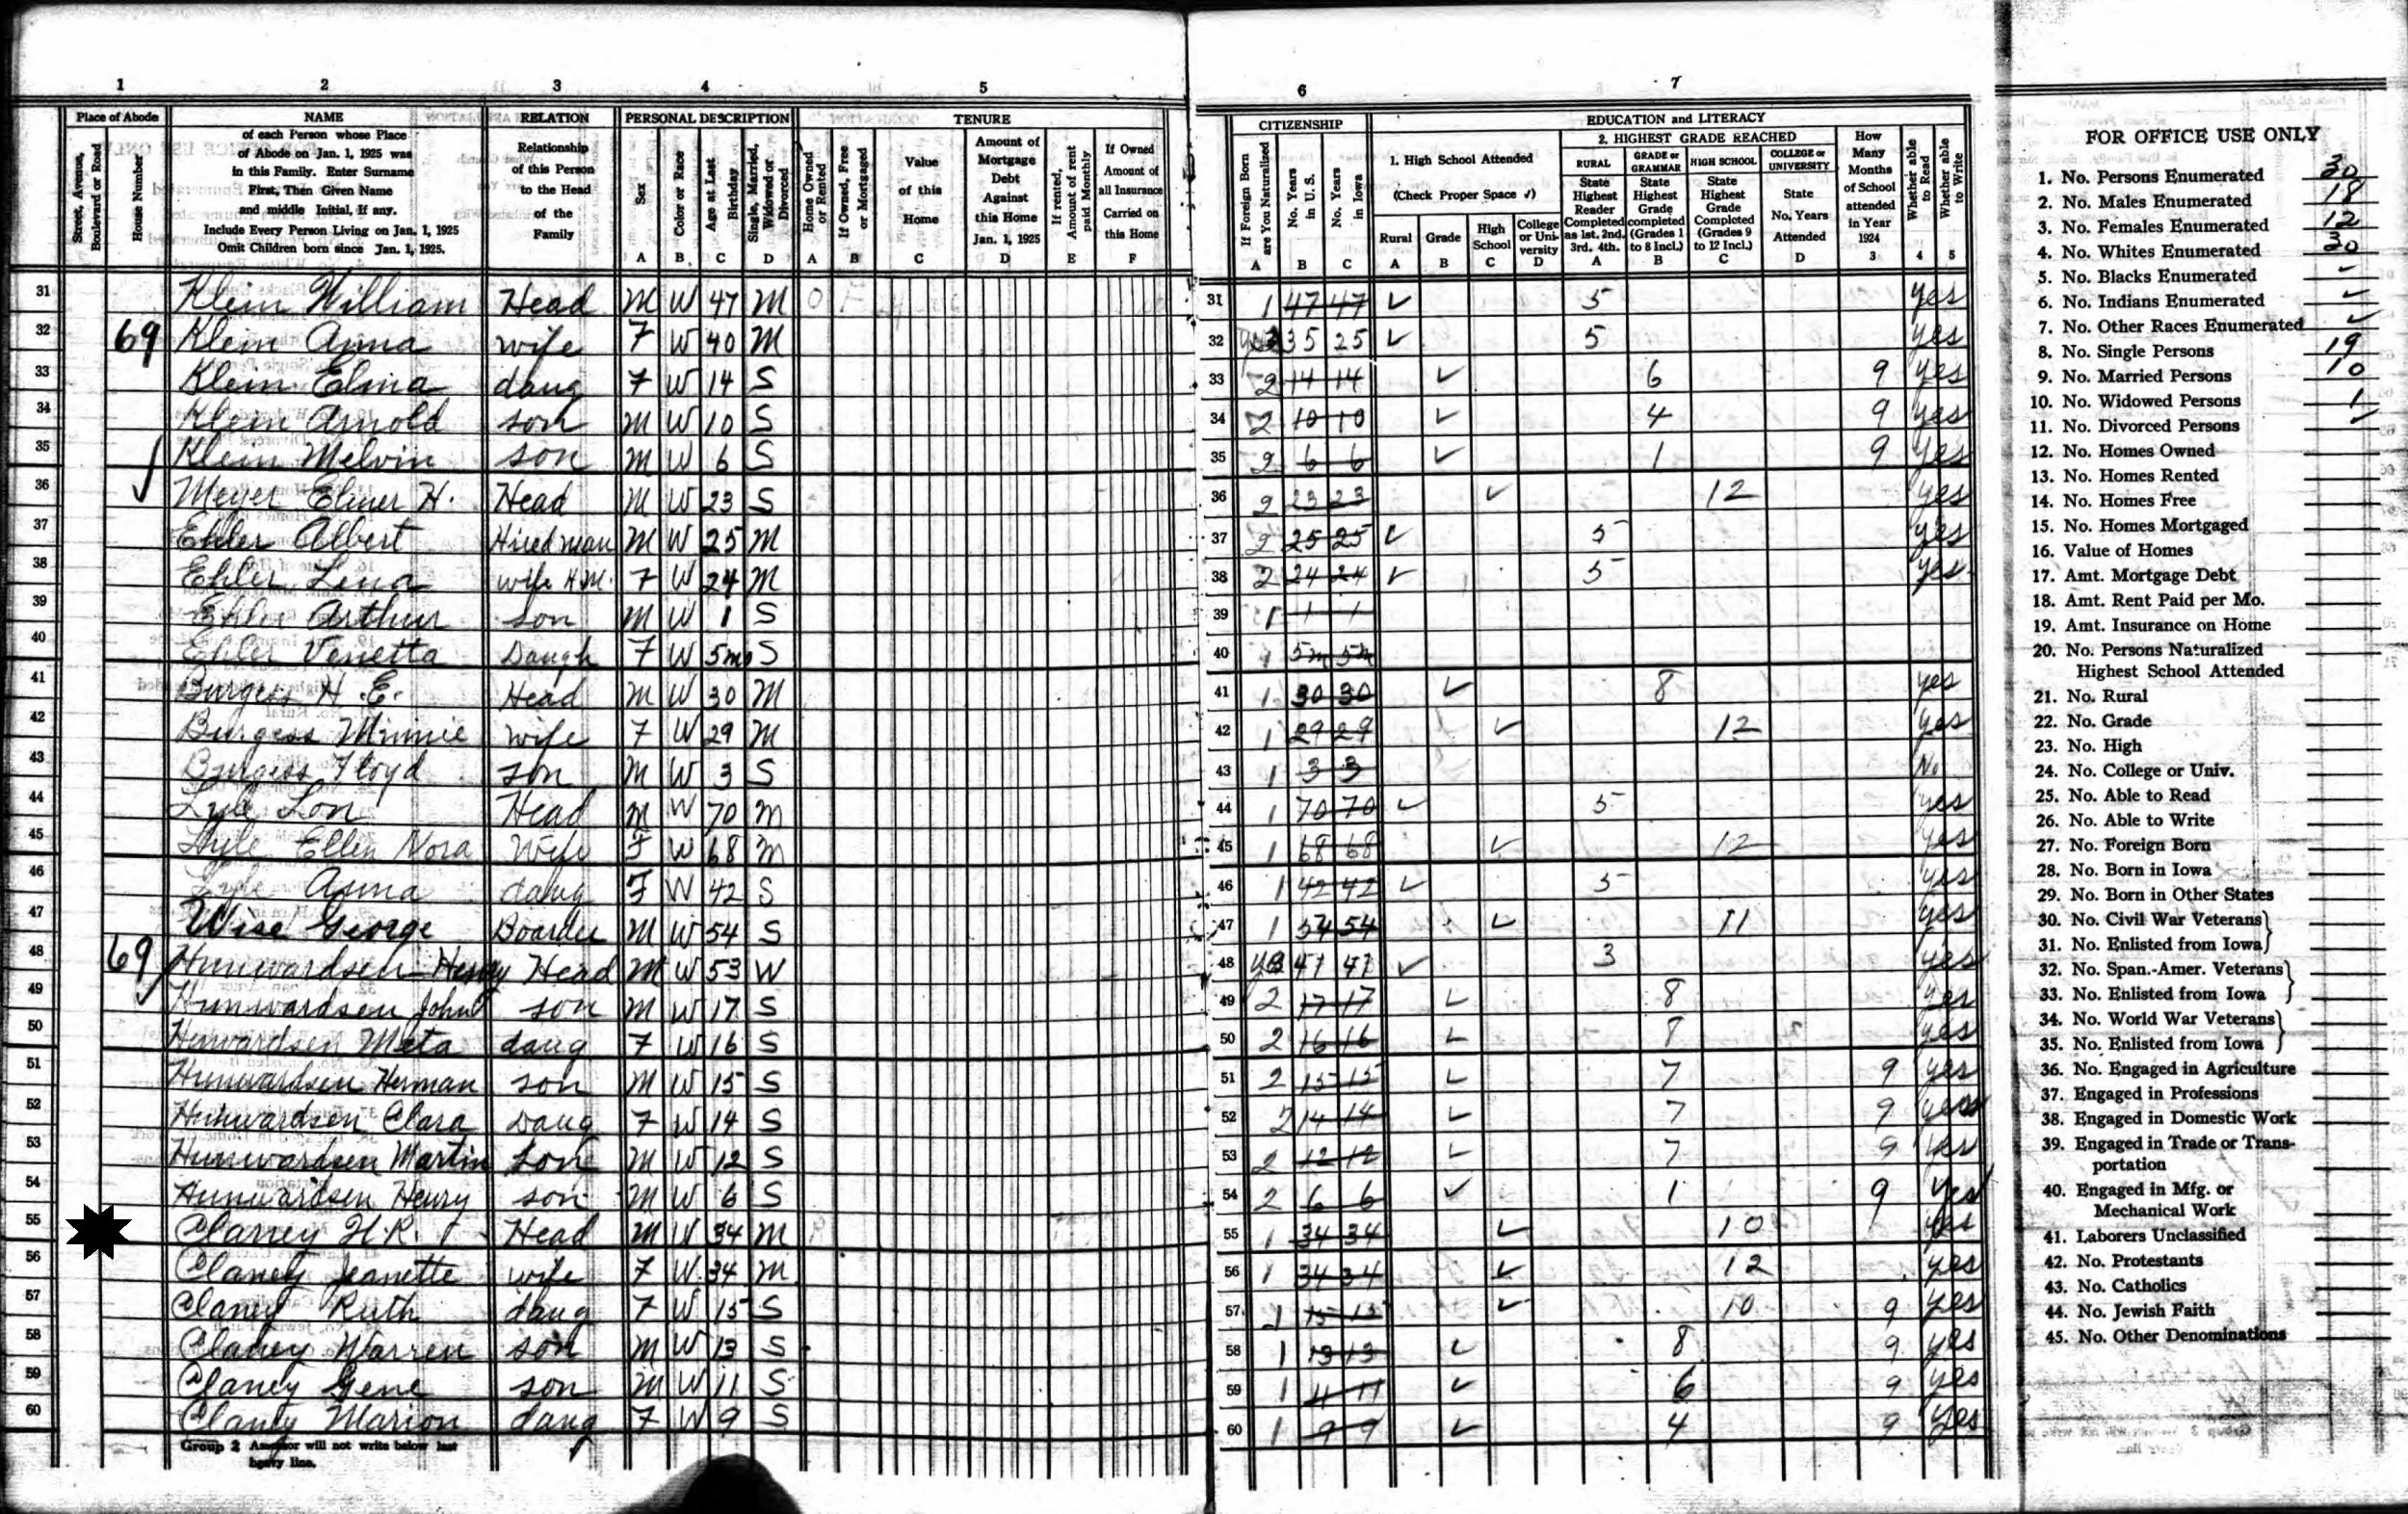 1 2 3 4 5 6 7
Place of Abode NAME RELATION PERSONAL DESCRIPTION TENURE CITIZENSHIP EDUCATION and LITERACY
Street, Avenue, Boulevard or Road
House Number
of each Person whose Place
of Abode on Jan. 1, 1925 was
in this Family. Enter Surname
First, Then Given Name
and middle Initial, If any.
Include Every Person Living on Jan. 1, 1925
Omit Children born since Jan. 1, 1925.
Relationship
of this Person
to the Head
of the
Family
Sex A
Color or Race B
Age at Last Birthday C
Single, Married, Widowed or Divorced D
Home Owned or Rented A
If Owned, Free or Mortgaged B
Value of this Home C
Amount of Mortgage Debt Against this Home Jan. 1, 1925 D
If rented, Amount of rent paid Monthly E
If Owned Amount of all Insurance Carried on this Home F
If Foreign Born are You Naturalized A
No. Years in U. S. B
No. Years in Iowa C
1. High School Attended
(Check Proper Space √)
Rural A
Grade B
High School C
College or University D
2. HIGHEST GRADE REACHED
RURAL State Highest Reader Completed as 1st. 2nd. 3rd. 4th. A
GRADE or GRAMMAR State Highest Grade completed (Grades 1 to 8 Incl.) B
HIGH SCHOOL State Highest Grade Completed (Grades 9 to 12 Incl.) C
COLLEGE or UNIVERSITY State No. Years Attended D
How Many Months of School attended in Year 1924 3
Whether able to Read 4
Whether able to Write 5
31 Klein William Head M W 47 M O F 31 1 47 47 ✓ 5 yes
32 69 Klein Anna wife F W 40 M 32 35 25 ✓ 5 yes
33 Klein Elma daug F W 14 S 33 2 14 14 ✓ 6 9 yes
34 Klein Arnold son M W 10 S 34 2 10 10 ✓ 4 9 yes
35 Klein Melvin son M W 6 S 35 2 6 6 ✓ 1 9 yes
36 Meyer Elmer H. Head M W 23 S 36 2 23 23 ✓ 12 yes
37 Ehler Albert Hired man M W 25 M 37 2 25 25 ✓ 5 yes
38 Ehler Lena wife H.M. F W 24 M 38 2 24 24 ✓ 5 yes
39 Ehler Arthur son M W 1 S 39 1 1 1
40 Ehler Venetta Daugh F W 5m S 40 1 5m 5m
41 Burgess H. E. Head M W 30 M 41 1 30 30 ✓ 8 yes
42 Burgess Minnie wife F W 29 M 42 1 29 29 ✓ 12 yes
43 Burgess Floyd son M W 3 S 43 1 3 3 No
44 Lyle Lon Head M W 70 M 44 1 70 70 ✓ 5 yes
45 Lyle Ellen Nora Wife F W 68 M 45 1 68 68 ✓ 12 yes
46 Lyle Anna daug F W 42 S 46 1 42 42 ✓ 5 yes
47 Wise George Boarder M W 54 S 47 1 54 54 ✓ 11 yes
48 69 Hunwardsen Henry Head M W 53 W 48 yes 47 47 ✓ 3 yes
49 Hunwardsen John son M W 17 S 49 2 17 17 ✓ 8 yes
50 Hunwardsen Meta daug F W 16 S 50 2 16 16 ✓ 8 yes
51 Hunwardsen Herman son M W 15 S 51 2 15 15 ✓ 7 9 yes
52 Hunwardsen Clara Daug F W 14 S 52 2 14 14 ✓ 7 9 yes
53 Hunwardsen Martin son M W 12 S 53 2 12 12 ✓ 7 9 yes
54 Hunwardsen Henry son M W 6 S 54 2 6 6 ✓ 1 9 yes
55 Clancy H.R. Head M W 34 M 55 1 34 34 ✓ 10 yes
56 Clancy Jeanette wife F W 34 M 56 1 34 34 ✓ 12 yes
57 Clancy Ruth daug F W 15 S 57 1 15 15 ✓ 10 9 yes
58 Clancy Warren son M W 13 S 58 1 13 13 ✓ 8 9 yes
59 Clancy Gene son M W 11 S 59 1 11 11 ✓ 6 9 yes
60 Clancy Marion daug F W 9 S 60 1 9 9 ✓ 4 9 yes
Group 2 Assessor will not write below last
heavy line.
FOR OFFICE USE ONLY
1. No. Persons Enumerated 30
2. No. Males Enumerated 18
3. No. Females Enumerated 12
4. No. Whites Enumerated 30
5. No. Blacks Enumerated
6. No. Indians Enumerated ✓
7. No. Other Races Enumerated ✓
8. No. Single Persons 19
9. No. Married Persons 10
10. No. Widowed Persons 1
11. No. Divorced Persons ✓
12. No. Homes Owned
13. No. Homes Rented
14. No. Homes Free
15. No. Homes Mortgaged
16. Value of Homes
17. Amt. Mortgage Debt
18. Amt. Rent Paid per Mo.
19. Amt. Insurance on Home
20. No. Persons Naturalized
Highest School Attended
21. No. Rural
22. No. Grade
23. No. High
24. No. College or Univ.
25. No. Able to Read
26. No. Able to Write
27. No. Foreign Born
28. No. Born in Iowa
29. No. Born in Other States
30. No. Civil War Veterans
31. No. Enlisted from Iowa
32. No. Span.-Amer. Veterans
33. No. Enlisted from Iowa
34. No. World War Veterans
35. No. Enlisted from Iowa
36. No. Engaged in Agriculture
37. Engaged in Professions
38. Engaged in Domestic Work
39. Engaged in Trade or Trans-
portation
40. Engaged in Mfg. or
Mechanical Work
41. Laborers Unclassified
42. No. Protestants
43. No. Catholics
44. No. Jewish Faith
45. No. Other Denominations